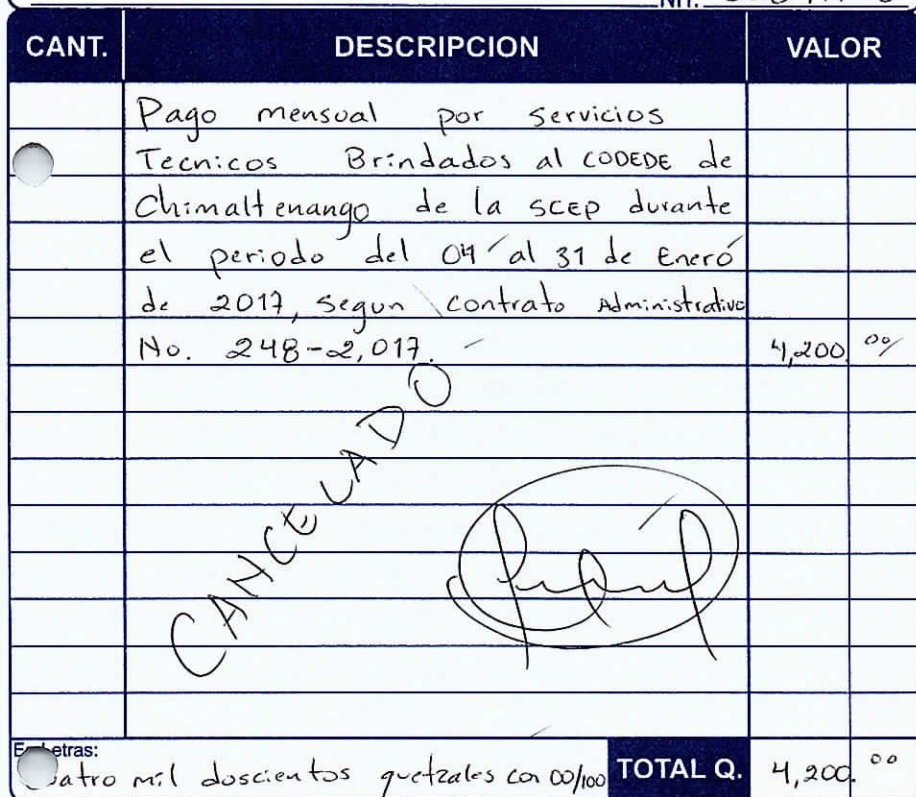 NIT.
CANT. DESCRIPCION VALOR
Pago mensual por servicios
Tecnicos Brindados al CODEDE de
Chimaltenango de la SCEP durante
el periodo del 04 al 31 de Enero
de 2017, segun contrato Administrativo
No. 248-2,017. 4,200 00/
CANCELADO
etras:
atro mil doscientos quetzales con 00/100 TOTAL Q. 4,200. 00